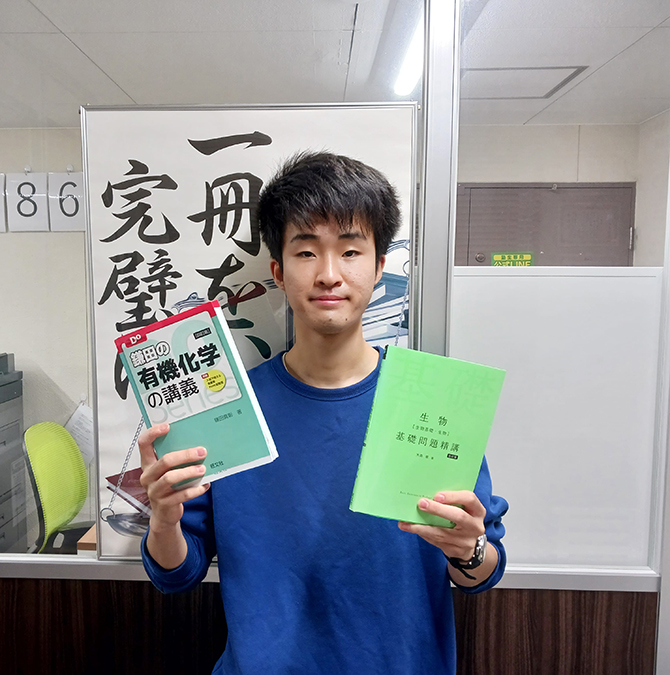 一冊を、
完璧に
86
Do
鎌田の
有機化学
の講義
四訂版
鎌田真彰 著
旺文社
生物
[生物基礎・生物]
基礎問題精講
公式LINE